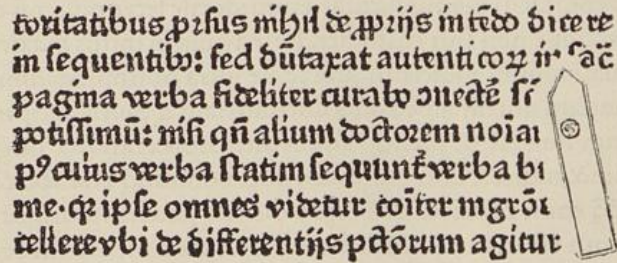 toritatibus ꝓrsus nihil de ꝓprijs intēdo dicere
in sequentibꝫ: sed dūtaxat autenticoꝝ in sac̄
pagina verba fideliter curabo ꝯnectē
potissimū: nisi qn̄ alium doctorem noīa
pꝰ cuius verba statim sequunt̄ verba
me. ꝙ ipse omnes videtur coīter in
cellere vbi de differentijs pctōrum agitur